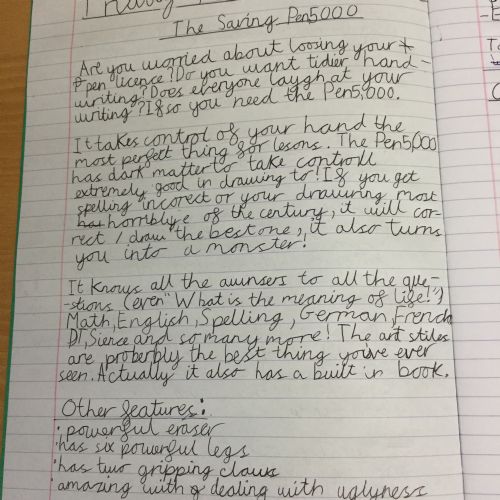 The Saving Pen5000
Are you worried about loosing your
pen licence? Do you want tidier hand-
writing? Does everyone laugh at your
writing? If so you need the Pen5,000.
It takes control of your hand the
most perfect thing for lesons. The Pen5,000
has dark matter to take controll
extremely good in drawing to! If you get
spelling incorect or your drawing most
horriblye of the century, it will cor-
rect / draw the best one, it also turns
you into a monster!
It knows all the awnsers to all the que-
-stions (even "What is the meaning of life!")
Math, English, Spelling, German, French
DT, Sience and so many more! The art stiles
are proberbly the best thing you've ever
seen. Actually it also has a built in book.
Other features:
· powerful eraser
· has six powerful legs
· has two gripping claws
· amazing with dealing with uglyness